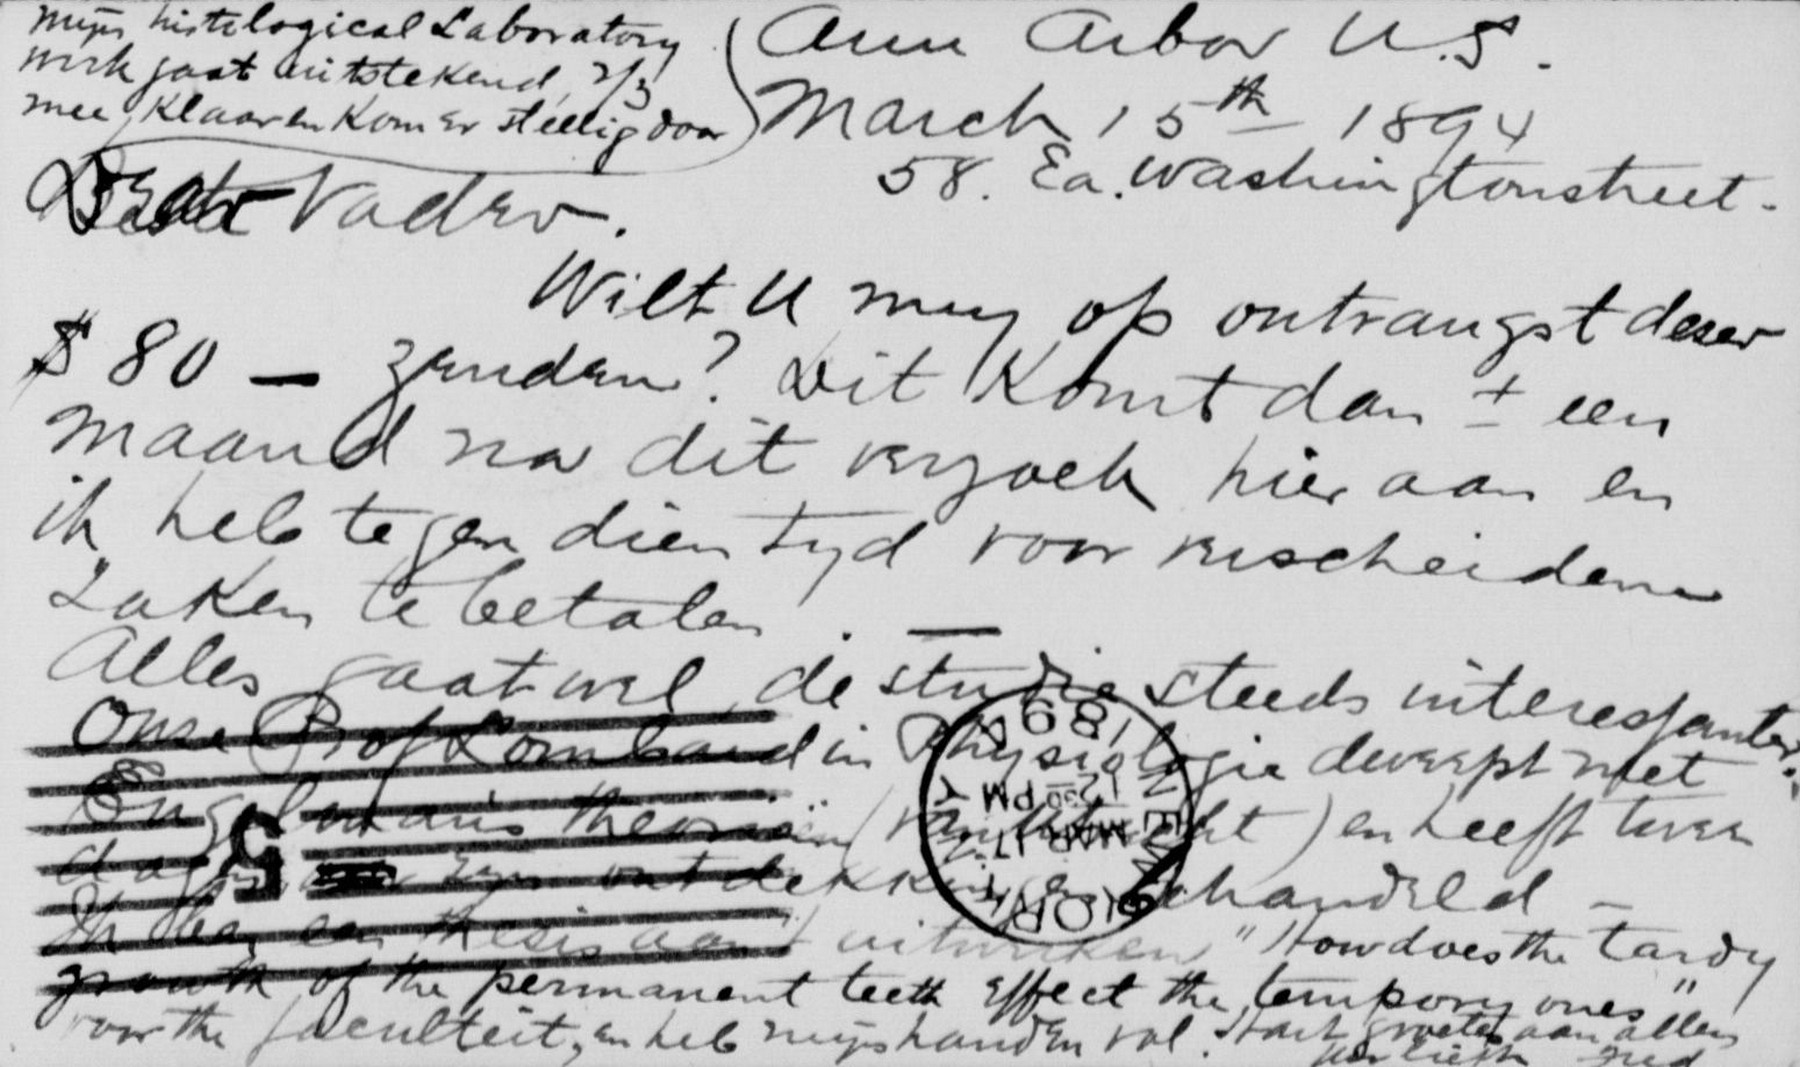 mijn histological Laboratory
werk gaat uitstekend, 2/3
mee klaar en kom er stellig door
Ann Arbor U.S.
March 15th 1894
58. Ea. Washingtonstreet.
Vader.
Wilt U mij op ontvangst deser
$ 80 — zenden? Dit komt dan ± een
maand na dit verzoek hier aan en
ik heb tegen dien tyd voor verscheidene
zaken te betalen. —
Alles gaat wel, de studie steeds interessanter.
Onze Prof Lombard in Physiologie dweept met
Engelman's theorieën (van Utrecht) en heeft twee
dagen zijn ontdekkingen behandeld —
Ik ben een thesis aan't uitwerken "How does the tardy
growth of the permanent teeth effect the tempory ones"
voor the faculteit, en heb mijn handen vol. Hart. groeten aan allen
1894
12 30 PM
MAR 17
5